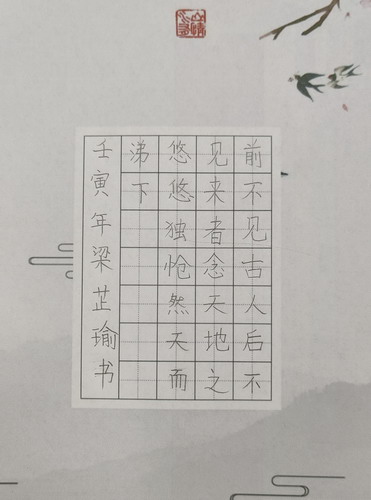 前不见古人后不
见来者念天地之
悠悠独怆然天而
涕下
壬寅年梁芷瑜书